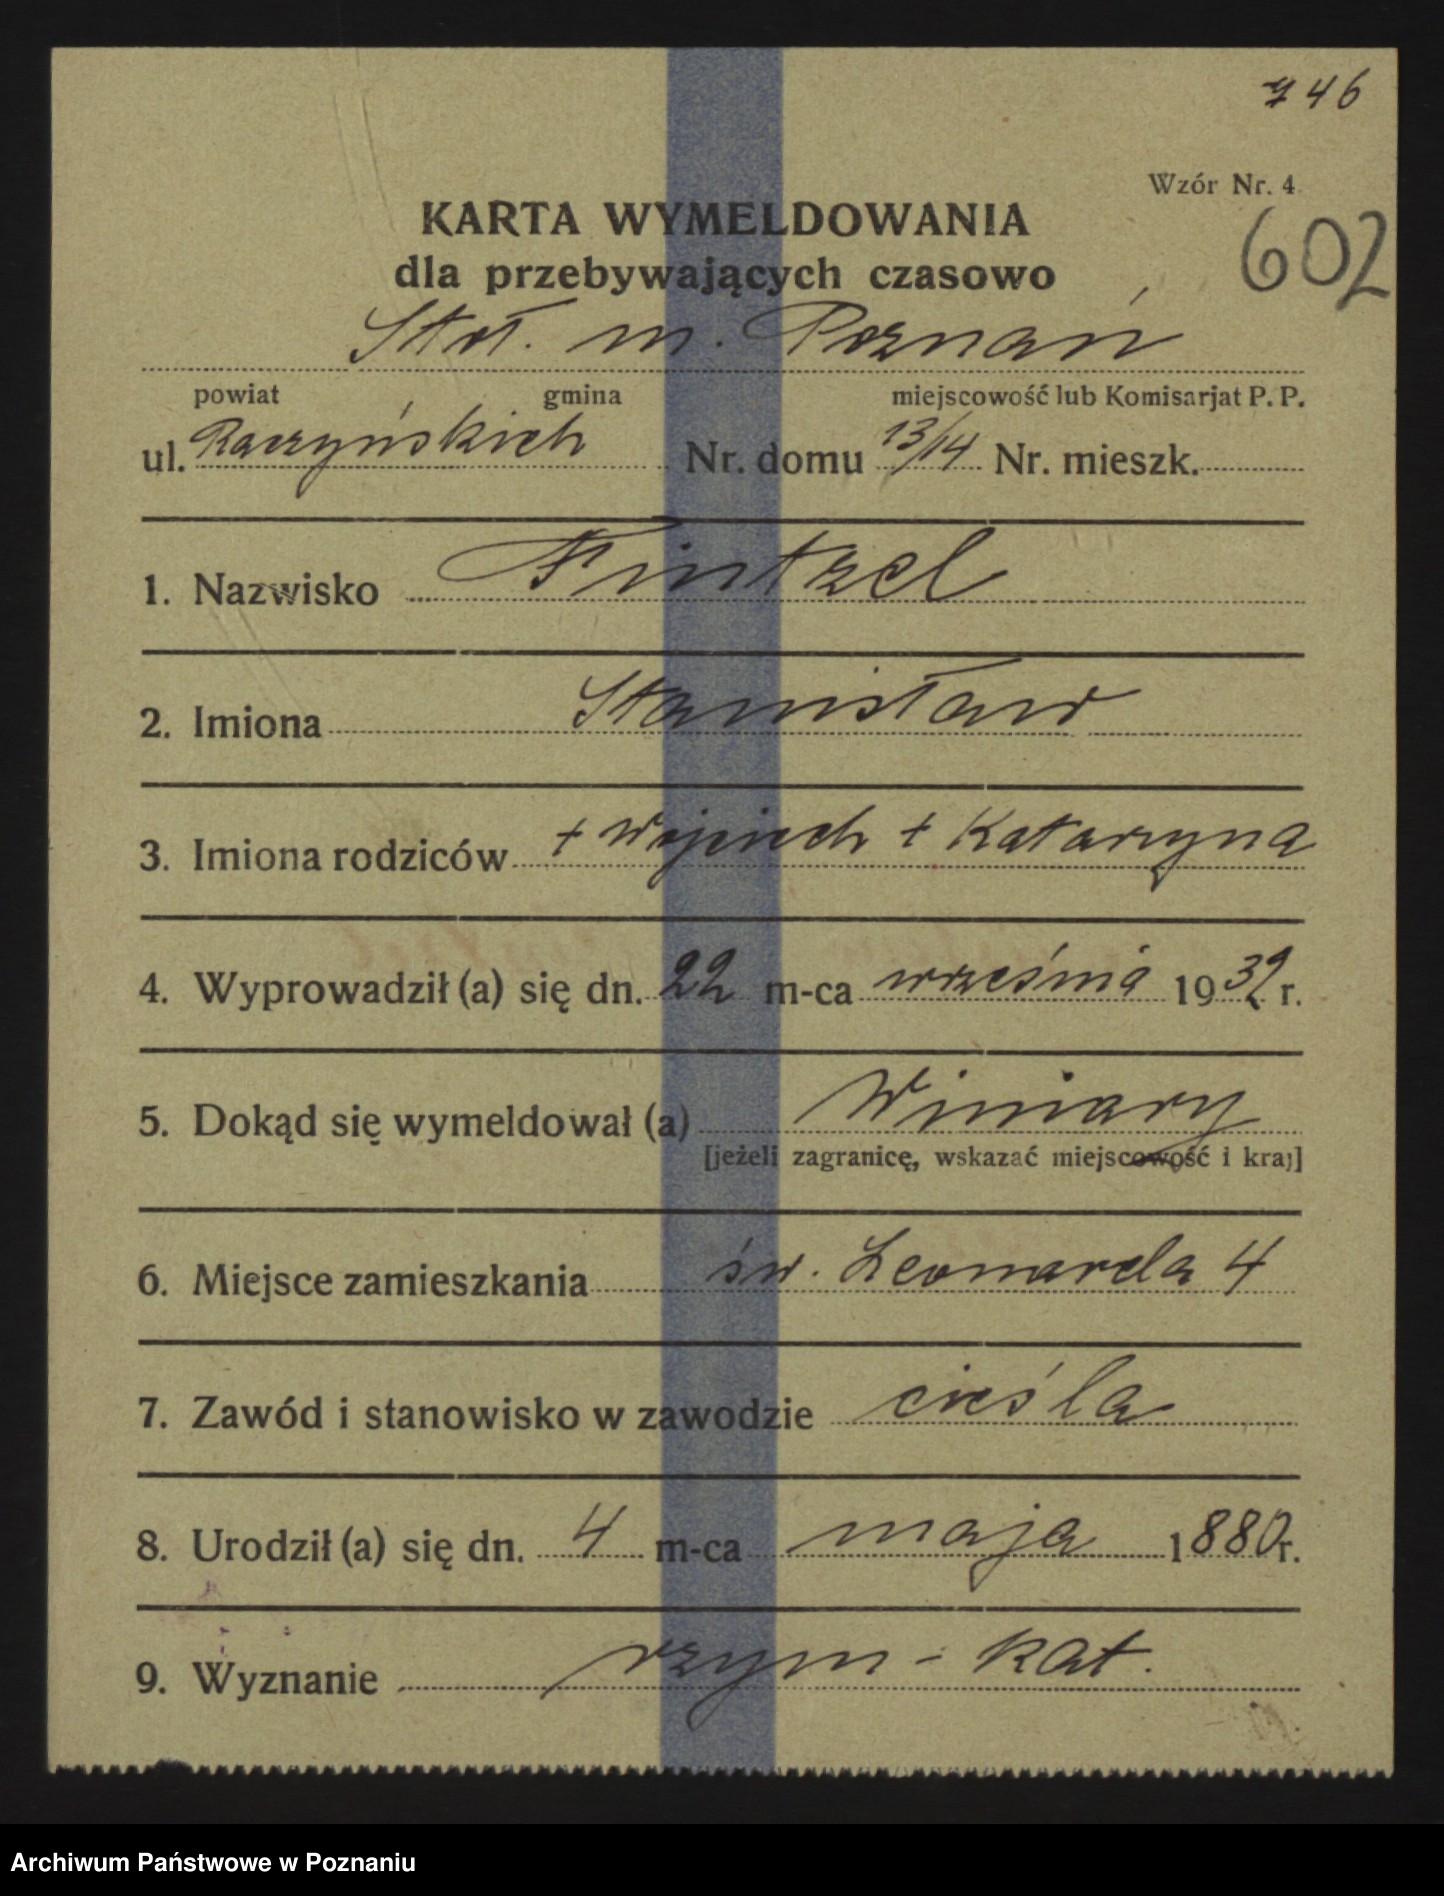 746
Wzór Nr. 4
602
KARTA WYMELDOWANIA
dla przebywających czasowo
Stoł. m. Poznań
powiat gmina miejscowość lub Komisarjat P. P.
ul. Raczyńskich Nr. domu 13/14 Nr. mieszk.
1. Nazwisko Fintzel
2. Imiona Stanisław
3. Imiona rodziców + Wojciech + Katarzyna
4. Wyprowadził (a) się dn. 22 m-ca września 1932 r.
5. Dokąd się wymeldował (a) Winiary
[jeżeli zagranicę, wskazać miejscowość i kraj]
6. Miejsce zamieszkania św. Leonarda 4
7. Zawód i stanowisko w zawodzie cieśla
8. Urodził (a) się dn. 4 m-ca maja 1880 r.
9. Wyznanie rzym-kat.
Archiwum Państwowe w Poznaniu